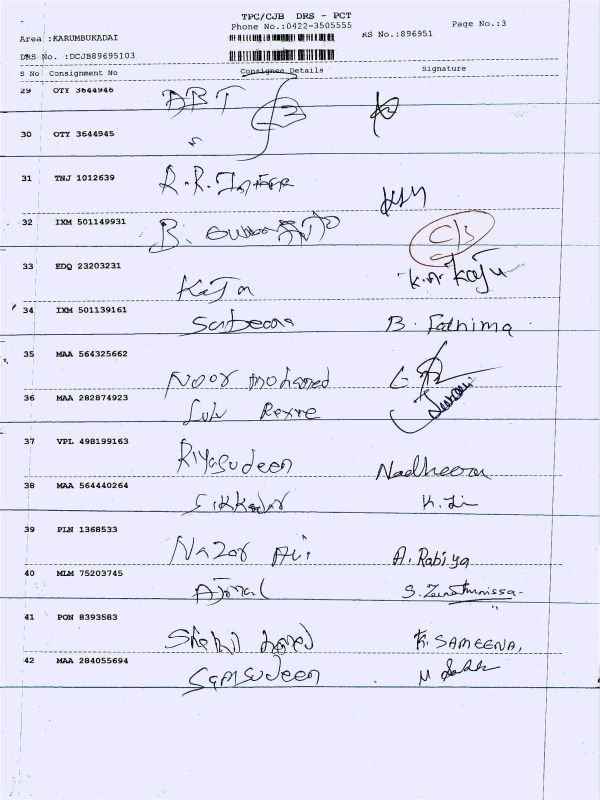 TPC/CJB DRS - PCT
Phone No.:0422-3505555
Page No.:3
Area :KARUMBUKADAI
RS No.:896951
DRS No. :DCJB89695103
S No Consignment No Consignee Details Signature
29 OTY 3644946 ABT
30 OTY 3644945
31 TNJ 1012639 R.R.
32 IXM 501149931 B.
C/B
33 EDQ 23203231 KaJa K.A Kaju
34 IXM 501139161 B. Fathima
35 MAA 564325662 Noor mohamed
36 MAA 282874923
37 VPL 498199163 Riyasudeen Nadheera
38 MAA 564440264 Sikkadar
39 PLN 1368533 Nazar Ali A. Rabiya
40 MLM 75203745 Ajmal S. Zainathunissa
41 PON 8393583 K. SAMEENA,
42 MAA 284055694 Samsudeen